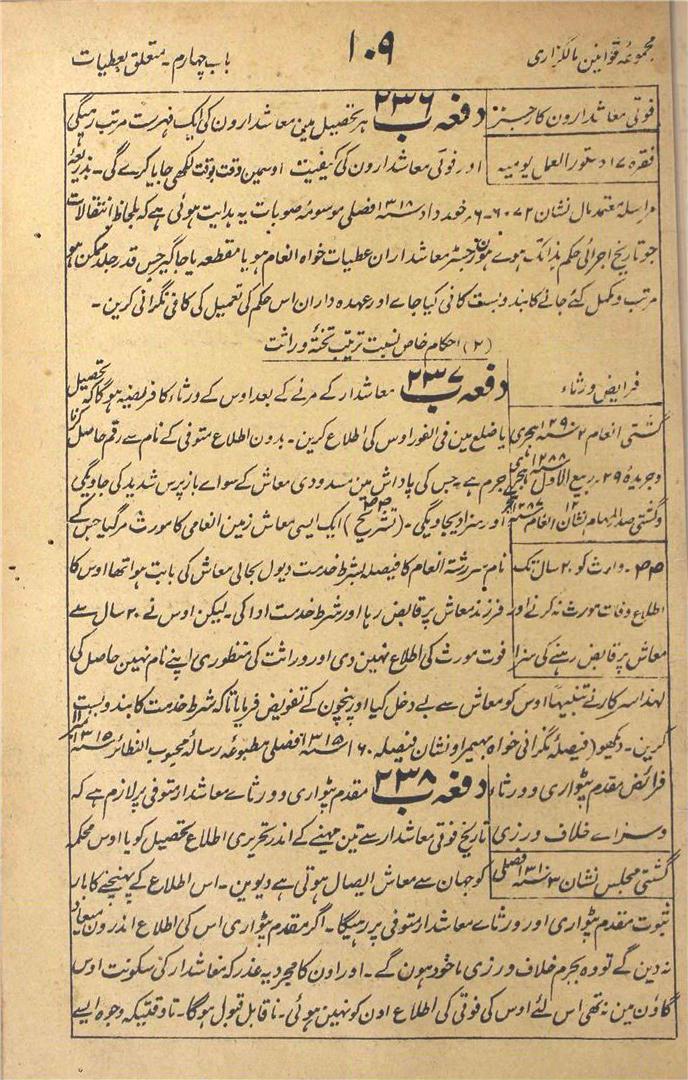 مجموعۂ قوانین مالگزاری
۱۰۹
باب چہارم۔ متعلق بعطیات
فوتی معاشدارون کا رجسٹر
فقرہ ۱۷ دستور العمل یومیہ
دفعہ ۲۳۶ ب ہر تحصیل مین معاشدارون کی ایک فہرست مرتب رہیگی
اور فوتی معاشدارون کی کیفیت اوسمین وقت بوقت لکھی جایا کرے گی۔ بذریعۂ
مراسلۂ معتمد مال نشان ۶۰۷۲ ۔ ۶ خورداد سنہ ۱۳۱۸ فصلی موسومۂ صوبات یہ ہدایت ہوئی ہے کہ بلحاظ انتقالات
جو تاریخ اجرائی حکم ہذا تک ہوے ہون رجسٹر معاشداران عطیات خواہ انعام ہو یا مقطعہ یا جاگیر جس قدر جلد ممکن ہو
مرتب و مکمل کئے جانے کا بندوبست کافی کیا جاے اور عہدہ داران اس حکم کی تعمیل کی کافی نگرانی کرین۔
(۲) احکام خاص نسبت ترتیب تختۂ وراثت
فرایض ورثاء
دفعہ ۲۳۷ ب معاشدار کے مرنے کے بعد اوس کے ورثاء کا فریضہ ہو گا کہ تحصیل
گشتی انعام ۲ سنہ ۱۲۹۰ ہجری
یا ضلع مین فی الفور اوس کی اطلاع کرین۔ بدون اطلاع متوفی کے نام سے رقم حاصل کرنا
وجریدہ ۲۹۔ ربیع الاول سنہ ۱۲۸۸ ہجری
جرم ہے جس کی پاداش مین مسدودی معاش کے سواے باز پرس شدید کی جاویگی
وگشتی صدر المہام نشان ۱۲ انعام سنہ ۱۲۸۶
اور سزا دیجاویگی۔ (تشریح صصہ) ایک ایسی معاش زمین انعامی کا مورث مر گیا جس کے
صصہ۔ وارث کو ۲۰ سال تک
نام سررشتۂ انعام کا فیصلہ بشرط خدمت دیول بحالی معاش کی بابت ہوا تھا اوس کا
اطلاع وفات مورث نہ کرنے اور
فرزند معاش پر قابض رہا اور شرط خدمت ادا کی۔ لیکن اوس نے ۲۰ سال سے
معاش پر قابض رہنے کی سزا
فوت مورث کی اطلاع نہین دی اور وراثت کی منظوری اپنے نام نہین حاصل کی
لہذا سرکار نے تنبیہاً اوس کو معاش سے بے دخل کیا اور پنچون کے تفویض فرمایا تاکہ شرط خدمت کا بندوبست
کرین۔ دیکھو (فیصلۂ نگرانی خواہ بھیمراو نشان فیصلہ ۶۰ سنہ ۱۳۱۵ فصلی مطبوعہ رسالۂ محبوب النظائر سنہ ۱۳۱۵
فرائض مقدم پٹواری وورثاء
وسزاے خلاف ورزی
گشتی مجلس نشان ۳ سنہ ۱۳۱۰ فصلی
دفعہ ۲۳۸ ب مقدم پٹواری وورثاے معاشدار متوفی پر لازم ہے کہ
تاریخ فوتی معاشدار سے تین مہینے کے اندر تحریری اطلاع تحصیل کو یا اوس محکمہ
کو جہان سے معاش ایصال ہوتی ہے دیوین۔ اس اطلاع کے پہنچنے کا بار
ثبوت مقدم پٹواری اور ورثاے معاشدار متوفی پر رہیگا۔ اگر مقدم پٹواری اس کی اطلاع اندرون میعاد
نہ دین گے تو وہ بجرم خلاف ورزی ماخوذ ہون گے۔ اور اون کا مجرد یہ عذر کہ معاشدار کی سکونت اوس
گاؤن مین نہ تھی اس لئے اوس کی فوتی کی اطلاع اون کو نہین ہوئی۔ ناقابل قبول ہو گا۔ تاوقتیکہ وجوہ ایسے